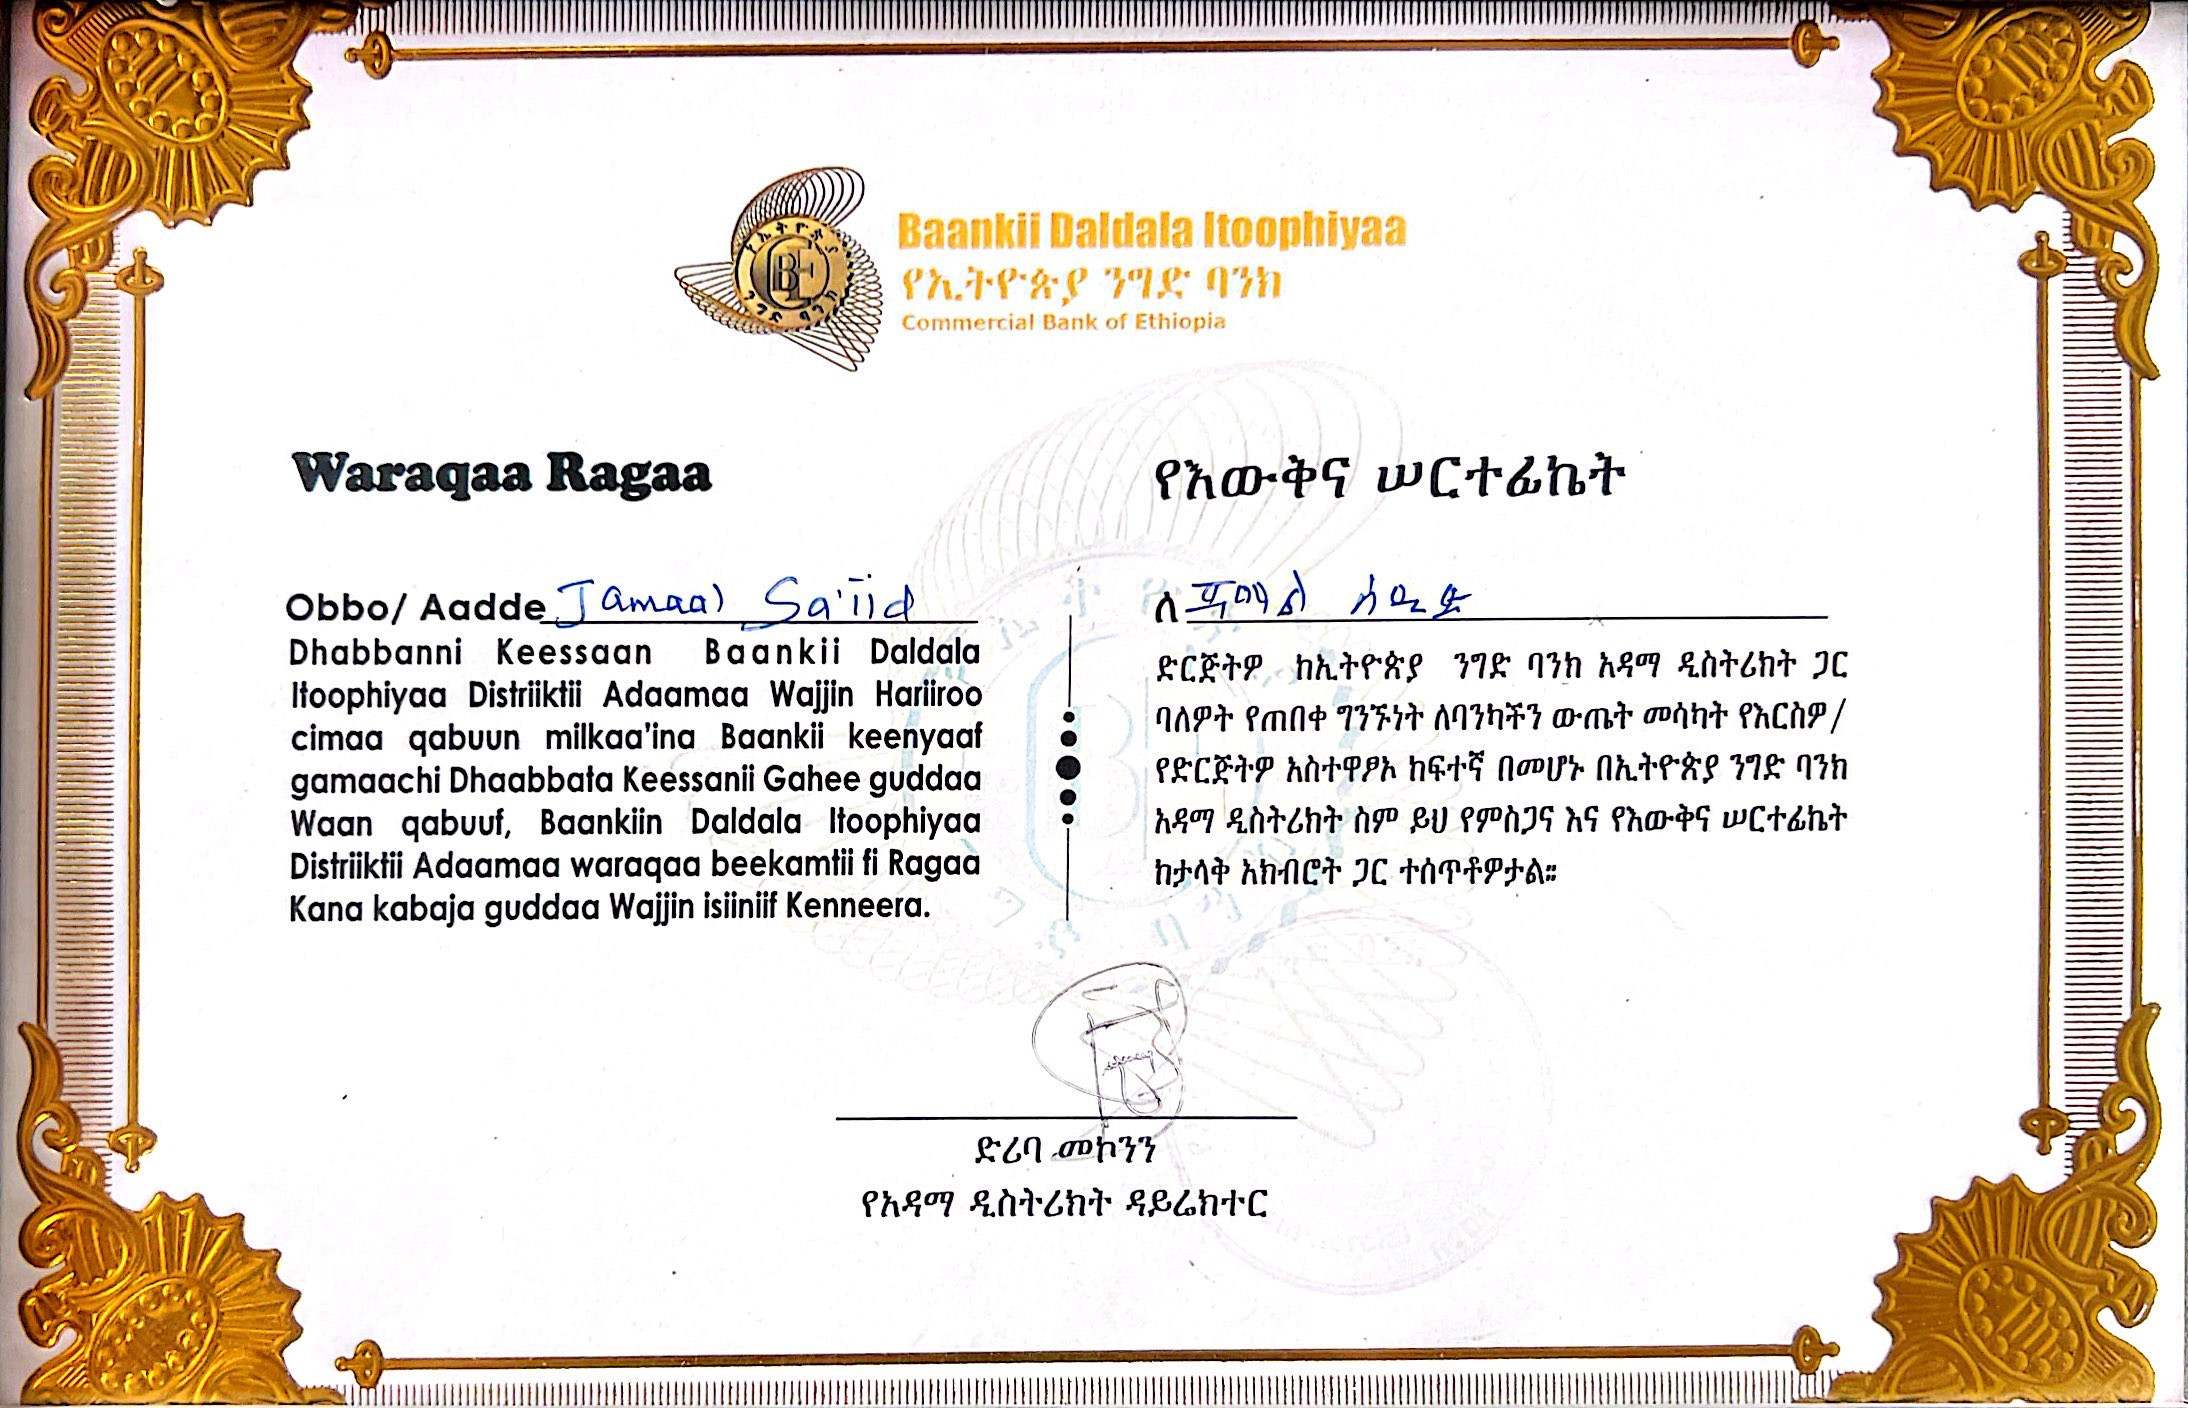 Baankii Daldala Itoophiyaa
የኢትዮጵያ ንግድ ባንክ
Commercial Bank of Ethiopia
Waraqaa Ragaa
Obbo/ Aadde Jamaal Sa'iid
Dhabbanni Keessaan Baankii Daldala
Itoophiyaa Distriiktii Adaamaa Wajjin Hariiroo
cimaa qabuun milkaa'ina Baankii keenyaaf
gamaachi Dhaabbata Keessanii Gahee guddaa
Waan qabuuf, Baankiin Daldala Itoophiyaa
Distriiktii Adaamaa waraqaa beekamtii fi Ragaa
Kana kabaja guddaa Wajjin isiiniif Kenneera.
የእውቅና ሠርተፊኬት
ለ ጃማል ሰዒድ
ድርጅትዎ ከኢትዮጵያ ንግድ ባንክ አዳማ ዲስትሪክት ጋር
ባለዎት የጠበቀ ግንኙነት ለባንካችን ውጤት መሳካት የእርስዎ/
የድርጅትዎ አስተዋፆኦ ከፍተኛ በመሆኑ በኢትዮጵያ ንግድ ባንክ
አዳማ ዲስትሪክት ስም ይህ የምስጋና እና የእውቅና ሠርተፊኬት
ከታላቅ አክብሮት ጋር ተሰጥቶዎታል።
ድሪባ መኮንን
የአዳማ ዲስትሪክት ዳይሬክተር